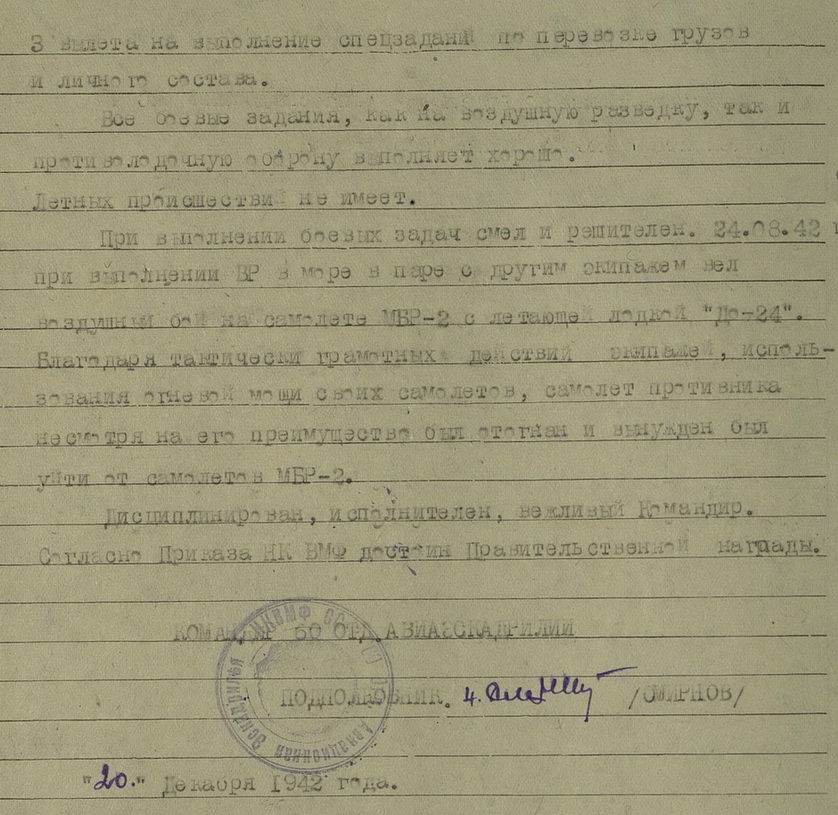 3 вылета на выполнение спецзаданий по перевозке грузов
и личного состава.
Все боевые задания, как на воздушную разведку, так и
противолодочную оборону выполняет хорошо.
Летных происшествий не имеет.
При выполнении боевых задач смел и решителен. 24.08.42 г
при выполнении ВР в море в паре с другим экипажем вел
воздушный бой на самолете МБР-2 с летающей лодкой "До-24".
Благодаря тактически грамотных действий экипажей, исполь-
зования огневой мощи своих самолетов, самолет противника
несмотря на его преимущество был отогнан и вынужден был
уйти от самолетов МБР-2.
Дисциплинирован, исполнителен, вежливый Командир.
Согласно Приказа НК ВМФ достоин Правительственной награды.
КОМАНДИР 60 ОТД.АВИАЭСКАДРИЛИИ
ПОДПОЛКОВНИК. /СМИРНОВ/
НКВМФ СС
Авиационная Эскадрилья
"20." Декабря 1942 года.